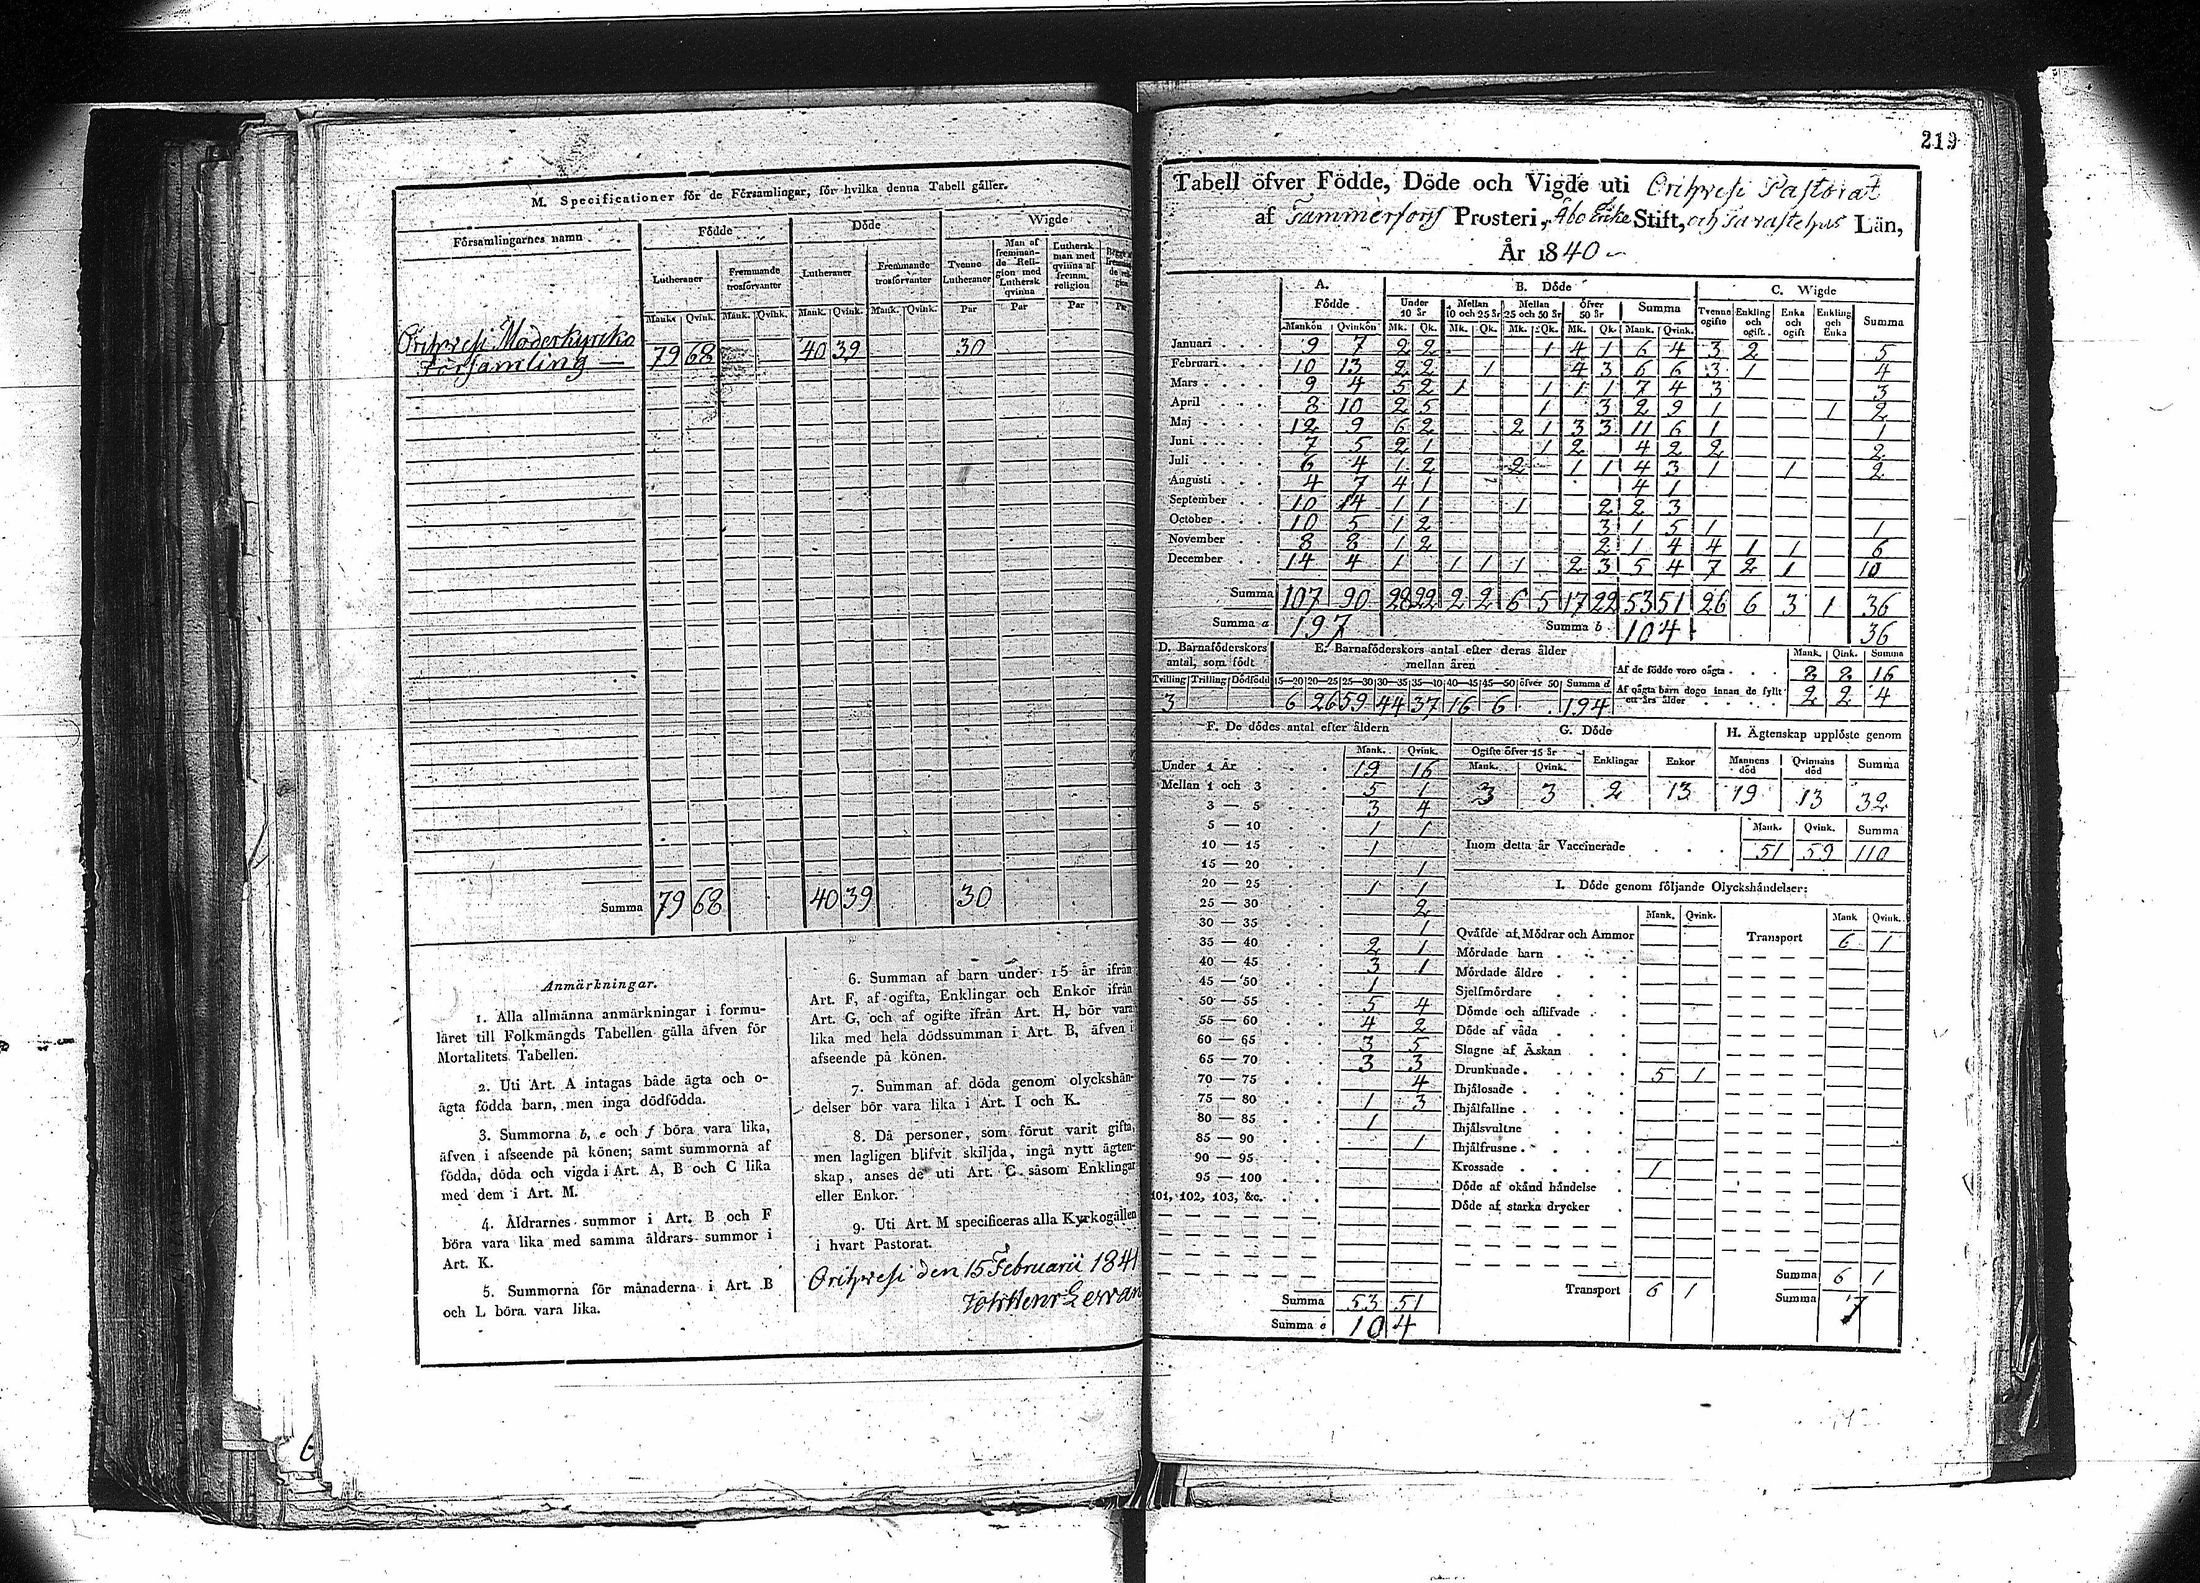 M. Specificationer för de Församlingar, för hvilka denna Tabell gäller.
Församlingarnes namn Födde Döde Wigde
Lutheraner Fremmande trosförvanter Lutheraner Fremmande trosförvanter Tvenne Lutheraner Man af fremmande Religion med Luthersk qvinna Luthersk man med qvinna af fremm. religion
Mank. Qvink. Mank. Qvink. Mank. Qvink. Mank. Qvink. Par Par Par Par
Orihvesi Moderkyrko
Församling 79 68 40 39 30
Summa 79 68 40 39 30
Anmärkningar.
1. Alla allmänna anmärkningar i formu-
läret till Folkmängds Tabellen gälla äfven för
Mortalitets Tabellen.
2. Uti Art. A intagas både ägta och o-
ägta födda barn, men inga dödfödda.
3. Summorna b, e och f böra vara lika,
äfven i afseende på könen; samt summorna af
födda, döda och vigda i Art. A, B och C lika
med dem i Art. M.
4. Åldrarnes summor i Art. B och F
böra vara lika med samma åldrars summor i
Art. K.
5. Summorna för månaderna i Art. B
och L böra vara lika.
6. Summan af barn under 15 år ifrån
Art. F, af ogifta, Enklingar och Enkor ifrån
Art. G, och af ogifte ifrån Art. H, bör vara
lika med hela dödssumman i Art. B, äfven i
afseende på könen.
7. Summan af döda genom olyckshän-
delser bör vara lika i Art. I och K.
8. Då personer, som förut varit gifta,
men lagligen blifvit skiljda, ingå nytt ägten-
skap, anses de uti Art. C såsom Enklingar
eller Enkor.
9. Uti Art. M specificeras alla Kyrkogällen
i hvart Pastorat.
Orihvesi den 15 Februarii 1841
219
Tabell öfver Födde, Döde och Vigde uti Orihvesi Pastorat
af Tammerfors Prosteri, Åbo Erke Stift, och Tavastehus Län,
År 1840
A. Födde B. Döde C. Wigde
Under 10 år Mellan 10 och 25 år Mellan 25 och 50 år Öfver 50 år Summa Tvenne ogifte Enkling och ogift. Enka och ogift Enkling och Enka Summa
Mankön Qvinkön Mk. Qk. Mk. Qk. Mk. Qk. Mk. Qk. Mank. Qvink.
Januari 9 7 2 2 1 4 1 6 4 3 2 5
Februari 10 13 2 2 1 4 3 6 6 3 1 4
Mars 9 4 5 2 1 1 1 1 7 4 3 3
April 8 10 2 5 1 3 2 9 1 1 2
Maj 12 9 6 2 2 1 3 3 11 6 1 1
Juni 7 5 2 1 1 2 4 2 2 2
Juli 6 4 1 2 2 1 1 4 3 1 1 2
Augusti 4 7 4 1 4 1
September 10 14 1 1 1 2 2 3
October 10 5 1 2 3 1 5 1 1
November 8 8 1 2 2 1 4 4 1 1 6
December 14 4 1 1 1 1 2 3 5 4 7 2 1 10
Summa 107 90 28 22 2 2 6 5 17 22 53 51 26 6 3 1 36
Summa a 197 Summa b 104 36
D. Barnaföderskors antal, som födt
Tvilling Trilling Dödfödd
3
E. Barnaföderskors antal efter deras ålder mellan åren
15—20 20—25 25—30 30—35 35—40 40—45 45—50 öfver 50 Summa d
6 26 59 44 37 16 6 194
Mank. Qink. Summa
Af de födde voro oägta 8 8 16
Af oägta barn dogo innan de fyllt ett års ålder 2 2 4
F. De dödes antal efter åldern
Mank. Qvink.
Under 1 År 19 16
Mellan 1 och 3 5 1
3 — 5 3 4
5 — 10 1 1
10 — 15 1
15 — 20 1
20 — 25 1 1
25 — 30 2
30 — 35 1
35 — 40 2 1
40 — 45 3 1
45 — 50 1
50 — 55 5 4
55 — 60 4 2
60 — 65 3 5
65 — 70 3 3
70 — 75 4
75 — 80 1 3
80 — 85 1
85 — 90 1
90 — 95
95 — 100
101, 102, 103, &c.
Summa 53 51
Summa e 104
G. Döde
Ogifte öfver 15 år Enklingar Enkor
Mank. Qvink.
3 3 2 13
H. Ägtenskap upplöste genom
Mannens död Qvinnans död Summa
19 13 32
Mank. Qvink. Summa
Inom detta år Vaccinerade 51 59 110
I. Döde genom följande Olyckshändelser:
Mank. Qvink. Mank Qvink.
Qväfde af Mödrar och Ammor Transport 6 1
Mördade barn
Mördade äldre
Sjelfmördare
Dömde och aflifvade
Döde af våda
Slagne af Åskan
Drunknade 5 1
Ihjälosade
Ihjälfallne
Ihjälsvultne
Ihjälfrusne
Krossade 1
Döde af okänd händelse
Döde af starka drycker
Transport 6 1
Summa 6 1
Summa 7